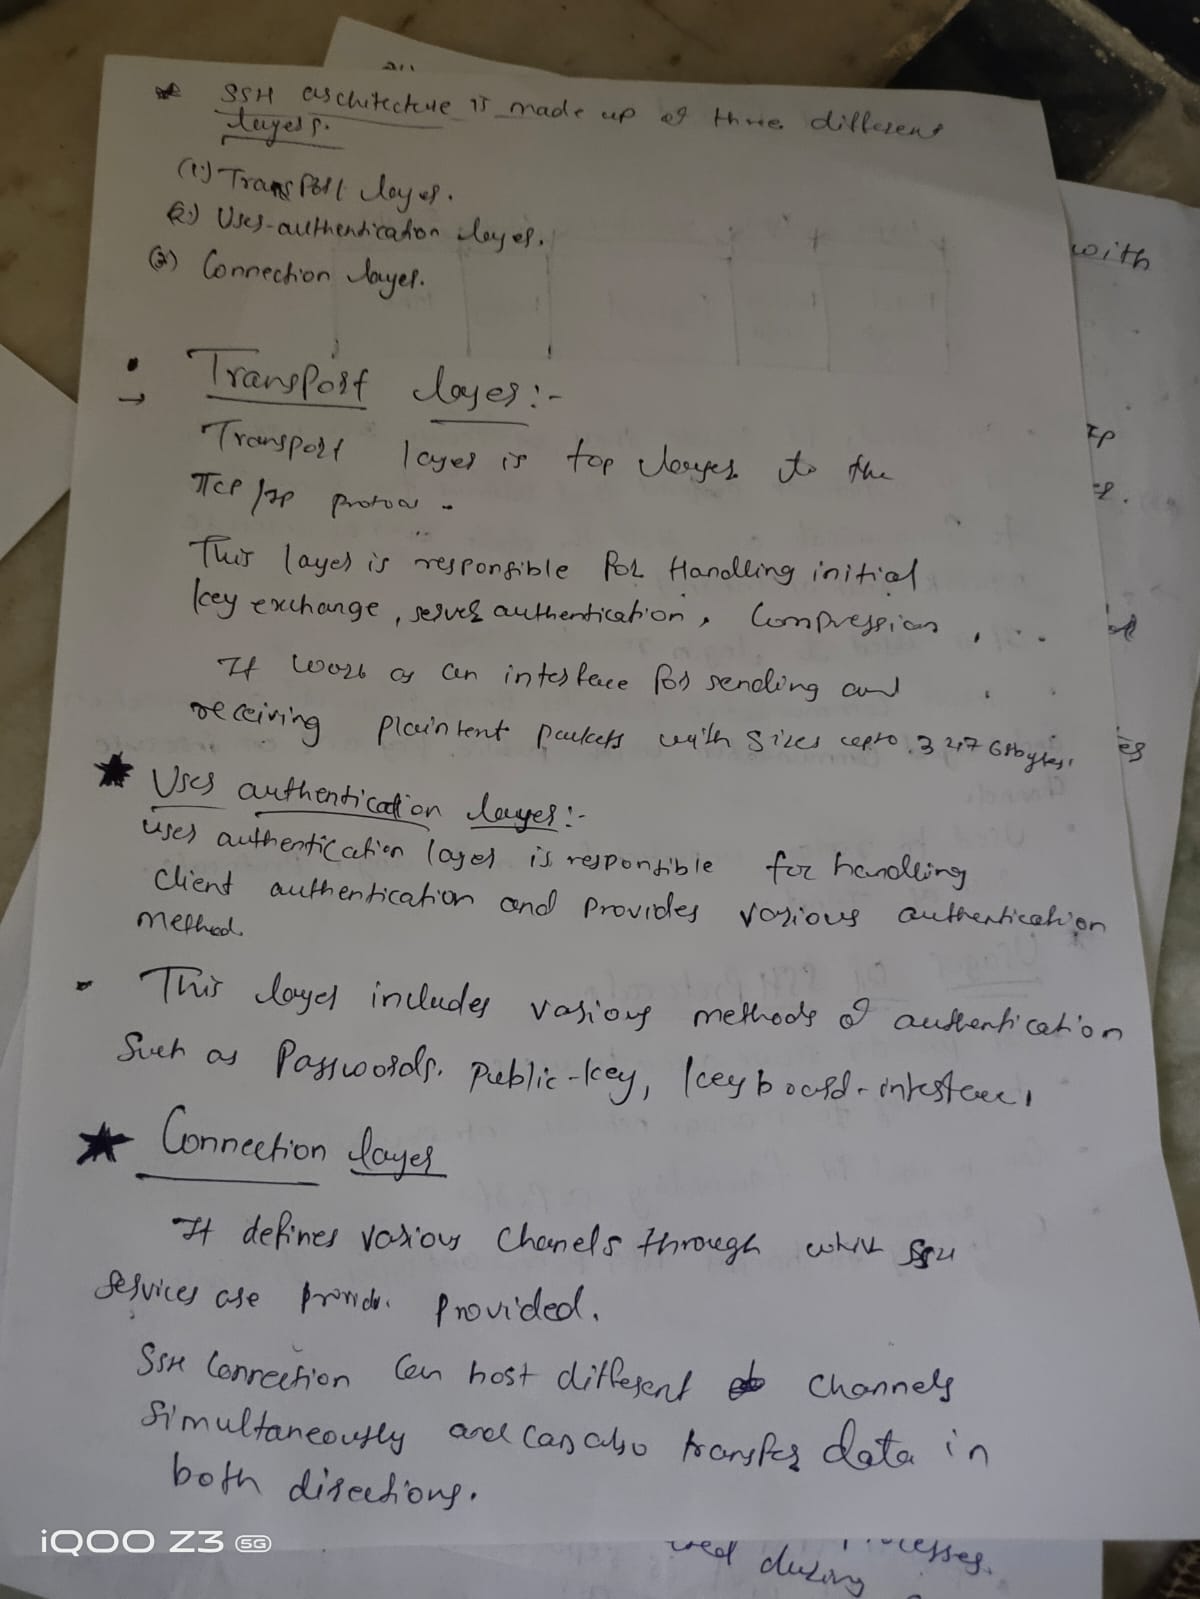 SSH architecture is made up of three different
layers.
(1.) Transport layer.
(2.) User-authentication layer.
(3) Connection layer.
Transport layer:-
Transport layer is top layer to the
TCP/IP protocol.
This layer is responsible for Handling initial
key exchange, server authentication, Compression,
It work as an interface for sending and
receiving plaintent packets with sizes upto
User authentication layer:-
user authentication layer is responsible for handling
Client authentication and provides various authentication
method.
This layer includes various methods of authentication
Such as Passwords. Public-key, keyboard-
Connection layer
It defines various Chanels through which SSH
services are provide. provided.
SSH Connection Can host different channels
Simultaneously and can also transfer data in
both directions.
with
IP
es
used during
processes.
iQOO Z3 5G